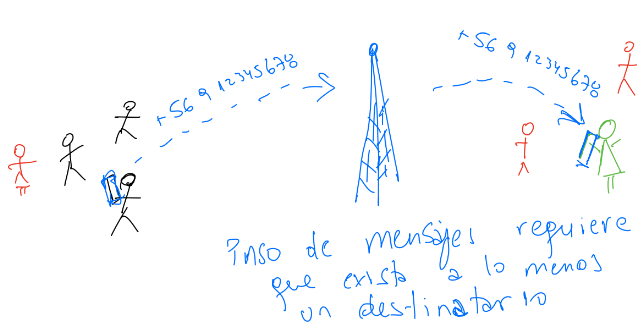 +56 9 12345678
+56 9 12345678
Paso de mensajes requiere
que exista a lo menos
un destinatario